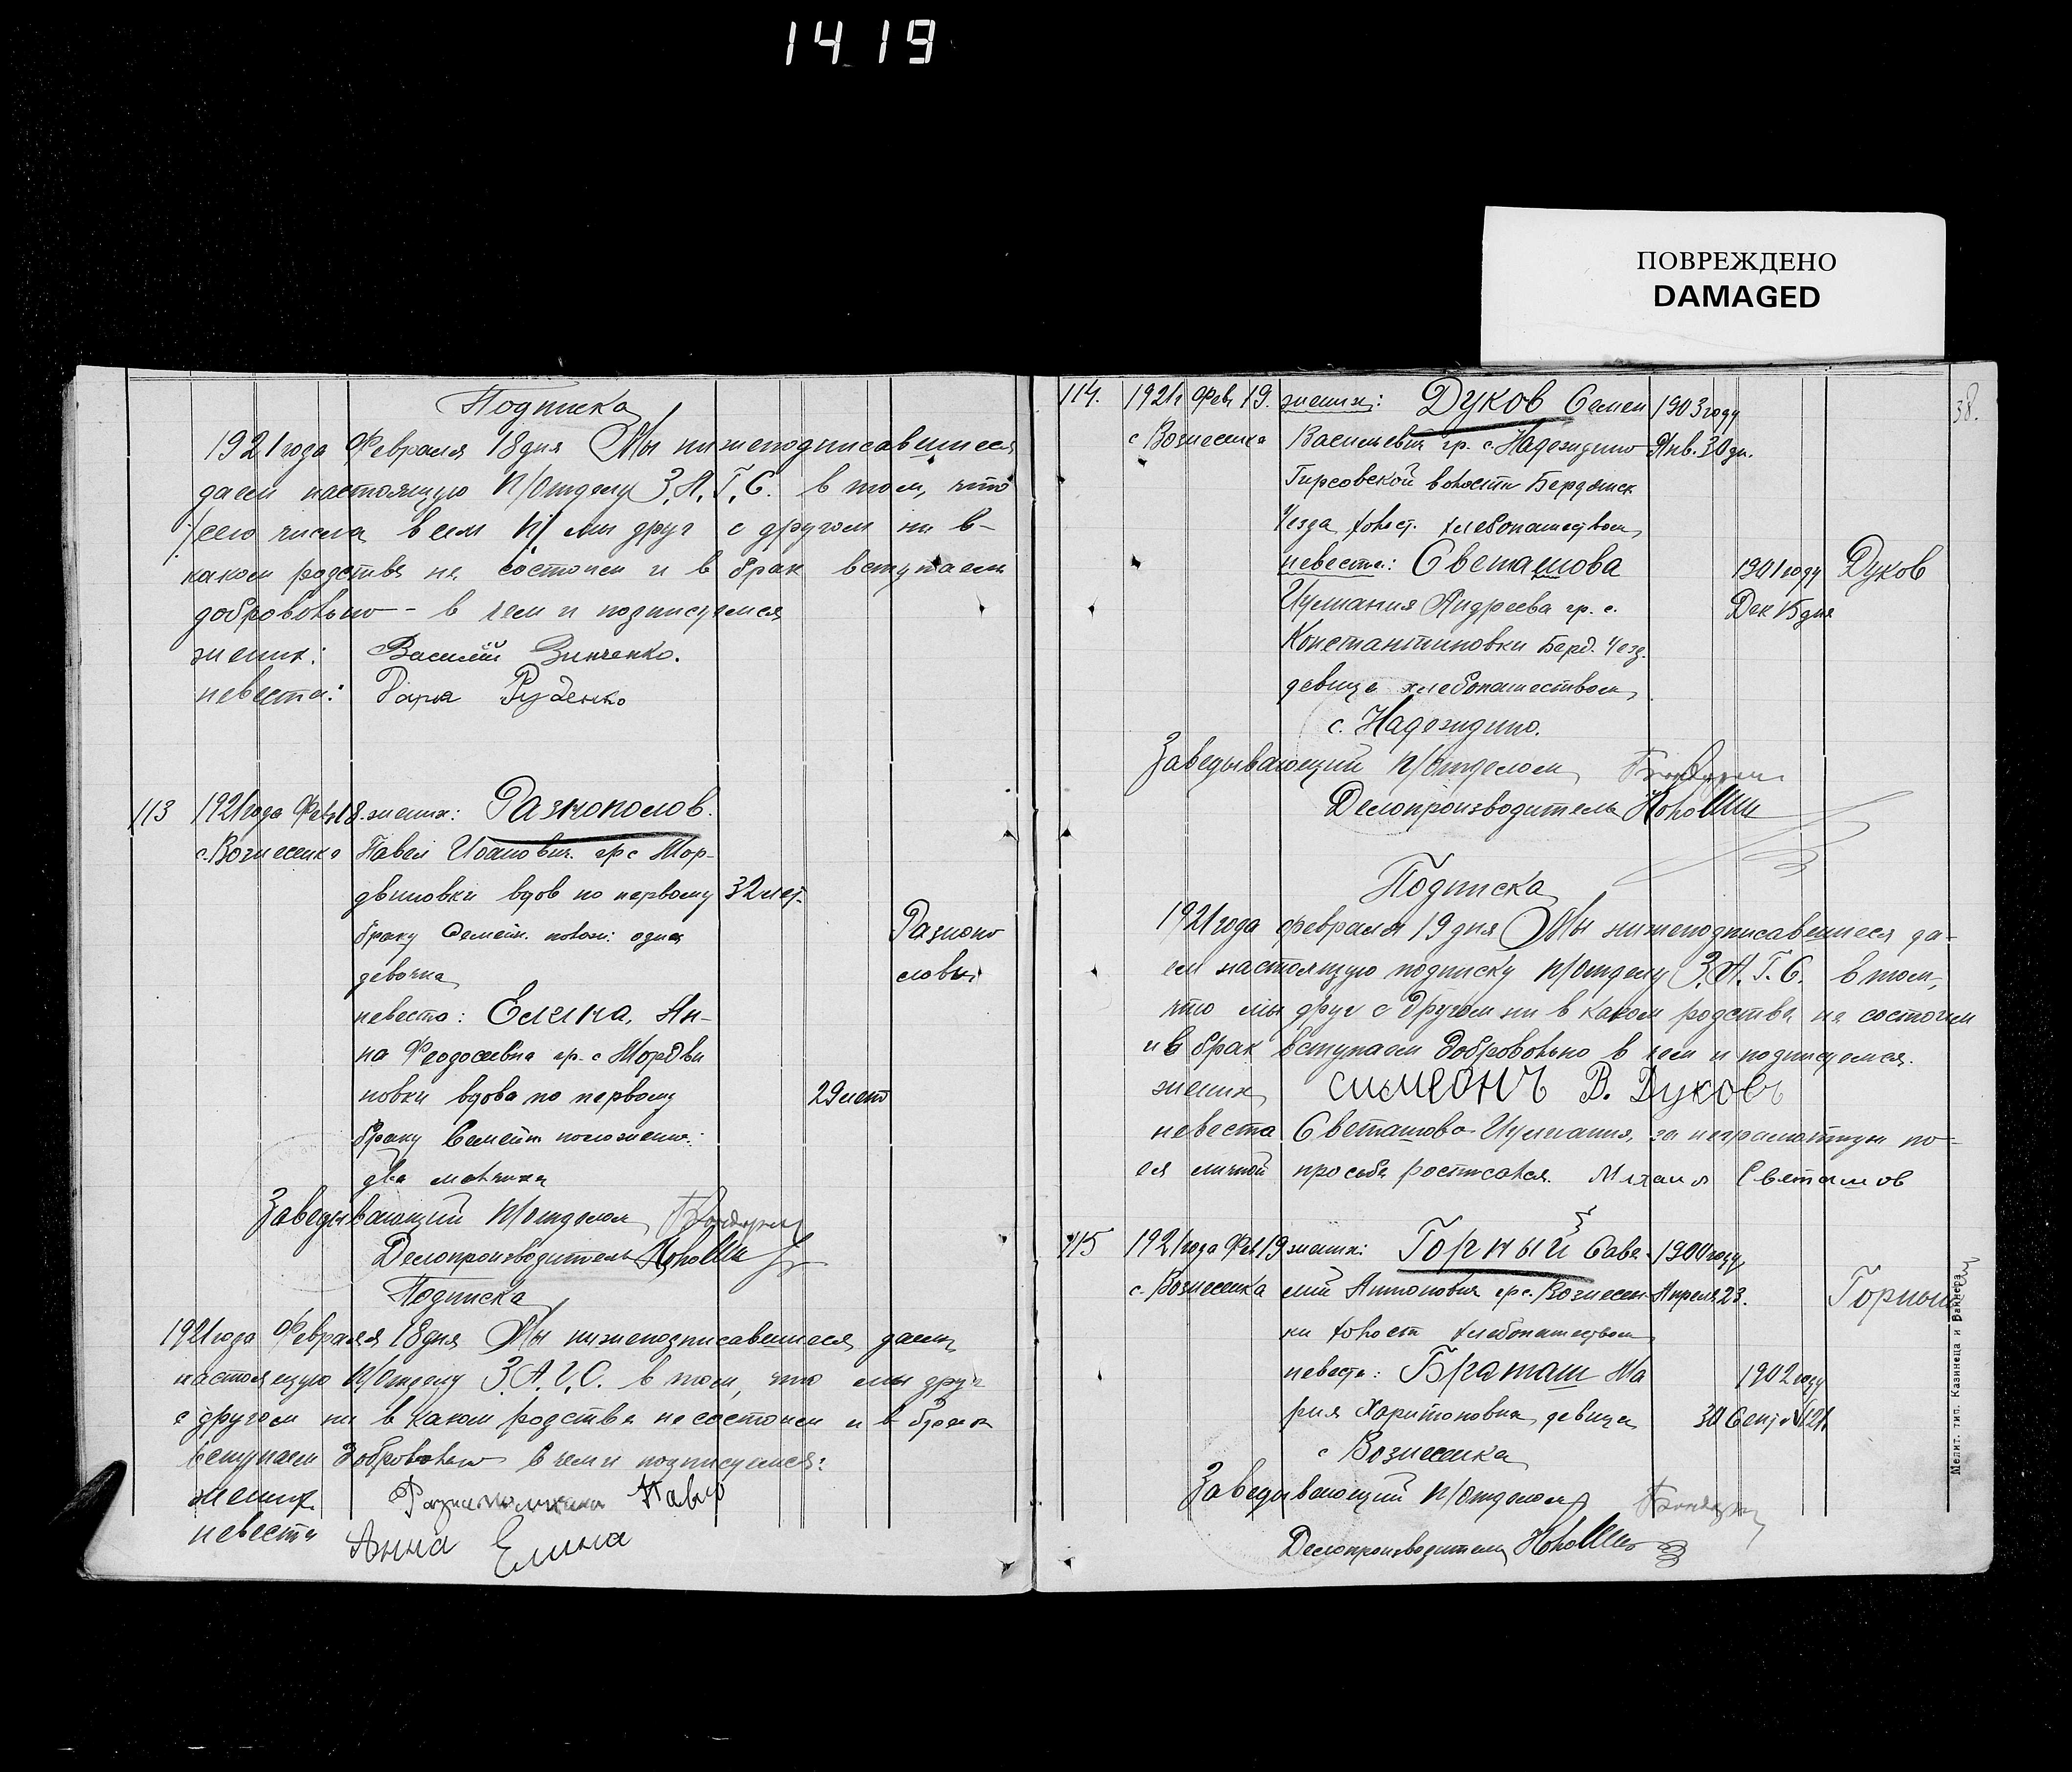 1419
ПОВРЕЖДЕНО
DAMAGED
Подписка
1921 года Февраля 18 дня Мы нижеподписавшиеся
даем настоящую П/Отделу З.А.Г.С. в том, что
сего числа всем мы друг с другом ни в-
каком родстве не состоим и в брак вступаем
добровольно - в чем и подписуемся
жених: Василий Зинченко.
невеста: Руденко
113 1921 года Фев 18. жених: Разнополов.
с. Вознесенка Павел Иванович гр с Мор-
двиновки вдов по первому 32 лет.
браку Семейн. полож: одна
Разнопо
девочка
ловы
невеста: Елина, Ан-
на Феодосевна гр. с Мордви
новки вдова по первому 29 лет
браку Семейн положение:
два мальчика
Заведывающий П/отделом
Делопроизводитель
Подписка
1921 года Февраля 18 дня Мы нижеподписавшиеся даем
настоящую П/Отделу З.А.Г.С. в том, что мы друг
с другом ни в каком родстве не состоим и в брак
вступаем добровольно в чем и подписуемся:
жених Павло
невеста Анна Елина
38.
114. 1921 г Фев 19. жених: Дуков Семен 1903 году
с Вознесенка Васильевич гр. с. Надеждино Янв. 30 дн.
Гирсовской волости Бердянск
Уезда холост. хлебопашеством
невеста: Светашова 1901 году Дуков
Андреева гр. с. Дек 15 дня
Константиновки Берд. Уезд.
девица хлебопашеством
с. Надеждино.
Заведывающий П/отделом
Делопроизводитель
Подписка
1921 года февраля 19 дня Мы нижеподписавшиеся да-
ем настоящую подписку П/Отделу З.А.Г.С. в том,
что мы друг с другом ни в каком родстве не состоим
и в брак вступаем добровольно в чем и подписуемся.
жених Симеонъ В. Дуковъ
невеста Светашова за неграмотную по-
ея личной просьбе росписался. Михаил Светашов
115 1921 года Фев 19 жених: Горный Саве- 1900 году
с. Вознесенка лий Антонович гр с. Вознесен- Апреля 23.
Горный
ки холост хлебопашеством
невеста: Браташ Ма 1902 году
рия Харитоновна девица
с Вознесенка
Заведывающий П/отделом
Делопроизводитель
Мелит. тип. Казинеца и Ваннера